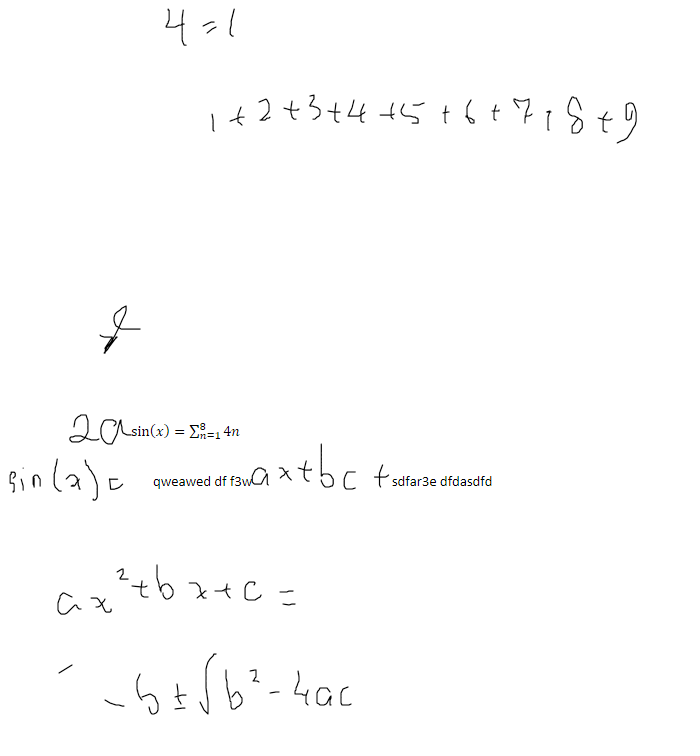 4 = 1
1 + 2 + 3 + 4 + 5 + 6 + 7 1 8 + 9
2a sin(x) = ∑⁸ₙ₌₁ 4n
sin(x) = qweawed df f3w ax + bc + sdfar3e dfdasdfd
ax² + bx + c =
- b ± √b² - 4ac